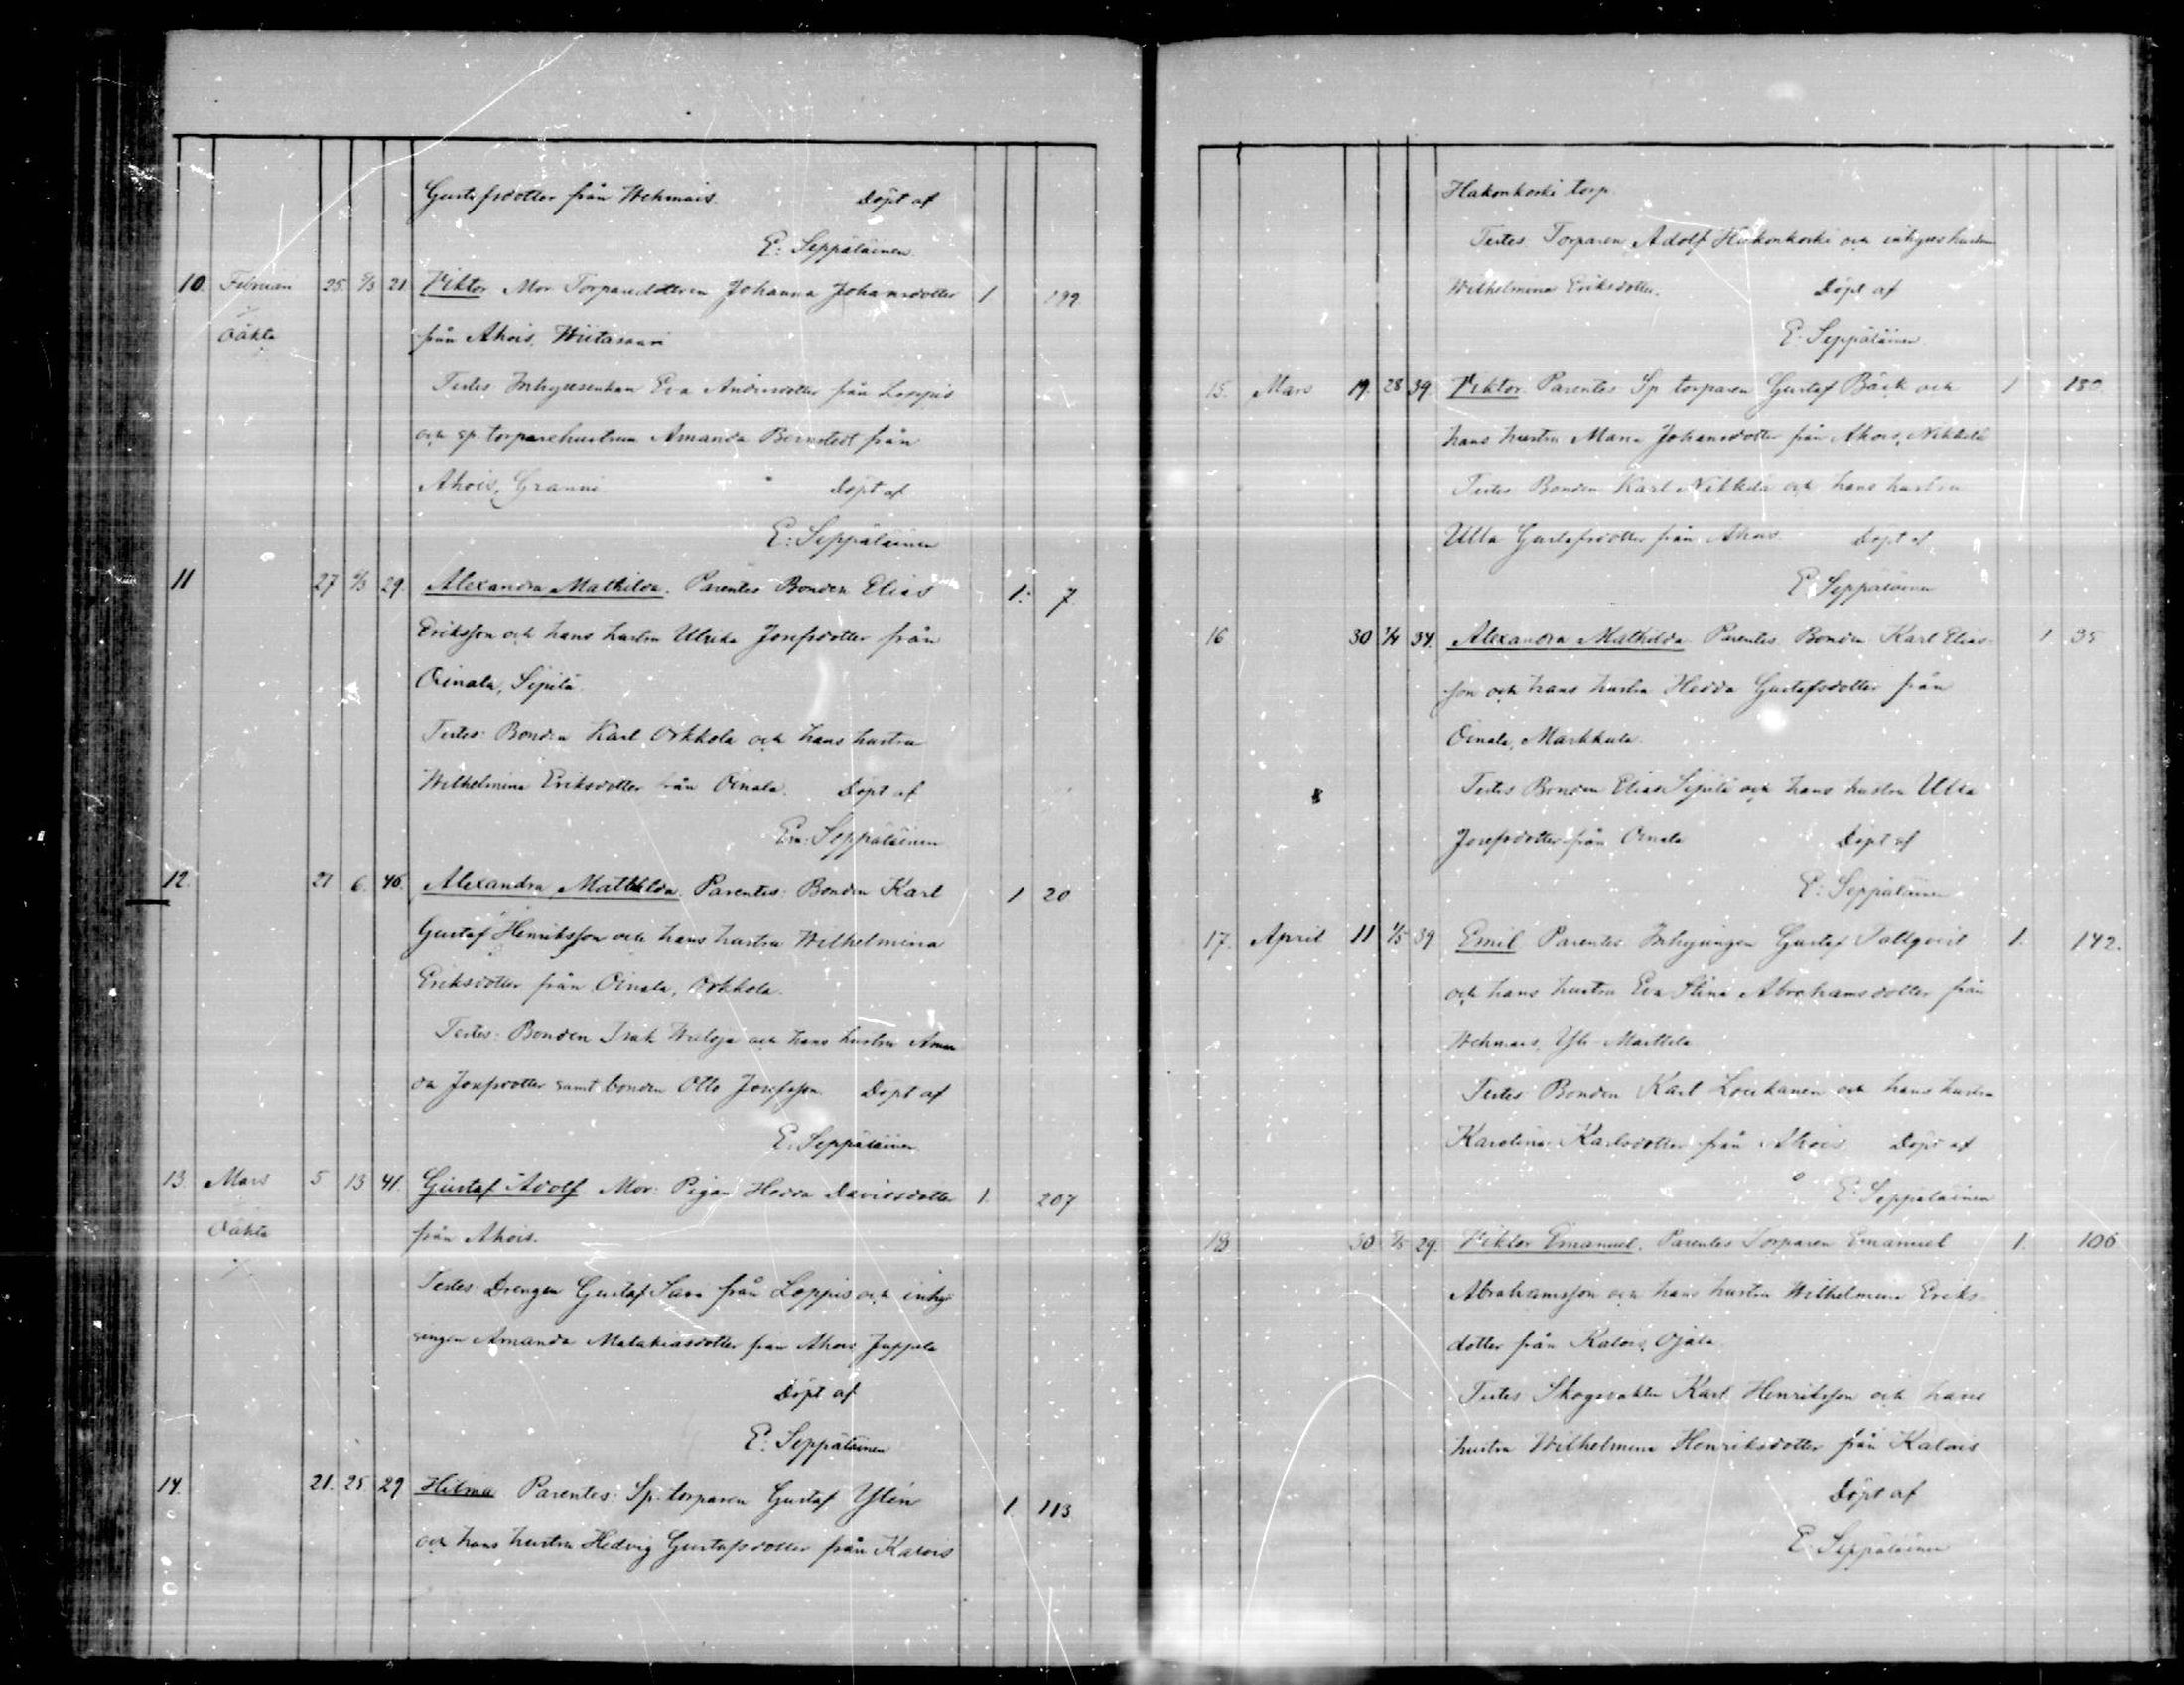 Gustafsdotter från Wehmais. Döpt af
E: Seppäläinen
10. Februari 25. 5/3 21 Viktor Mor Torparedottren Johanna Johansdotter 1 199
Oäkta från Ahois, Wiitasaari
Testes Inhyseenkan Eva Andersdotter från Loppis
och sp. torparehustrun Amanda Bernstedt från
Ahois, Granni Döpt af
E: Seppäläinen
11 27 4/3 29. Alexandra Mathilda. Parentes Bonden Elias 1. 7.
Eriksson och hans hustru Ulrika Josefsdotter från
Oinala, Sipilä.
Testes: Bonden Karl Orkkola och hans hustru
Wilhelmina Eriksdotter från Oinala. Döpt af
E: Seppäläinen
12. 27 6. 46. Alexandra Mathilda. Parentes: Bonden Karl 1 20
Gustaf Henriksson och hans hustru Wilhelmina
Eriksdotter från Oinala, Orkkola.
Testes: Bonden Isak och hans hustru Aman
da Josefsdotter samt bonden Otto Josefsson. Döpt af
E: Seppäläinen
13. Mars 5 13 41. Gustaf Adolf Mor: Pigan Hedda Davidsdotter 1. 207
Oäkta från Ahois.
Testes: Drengen Gustaf från Loppis och inhy
singen Amanda Malakiasdotter från Ahois, Juppala
Döpt af
E: Seppäläinen
14. 21. 25. 29 Hilma Parentes: Sp. torparen Gustaf Ylén 1. 113
och hans hustru Hedvig Gustafsdotter från Kalois
Hakonkoski torp.
Testes: Torparen Adolf Hakonkoski och inhyseshustrun
Wilhelmina Eriksdotter. Döpt af
E: Seppäläinen
15. Mars 19. 28 39. Viktor. Parentes Sp torparen Gustaf Bäck och 1 180
hans hustru Maria Johansdotter från Ahois, Nikkilä
Testes Bonden Karl Nikkilä och hans hustru
Ulla Gustafsdotter från Ahois. Döpt af
E: Seppäläinen
16 30 1/4 34. Alexandra Mathilda Parentes. Bonden Karl Elias- 1 35
son och hans hustru Hedda Gustafsdotter från
Oinala, Markkula.
Testes Bonden Elias Sipilä och hans hustru Ulla
Josefsdotter från Oinala Döpt af
E: Seppäläinen
17. April 11 1/5 39 Emil Parentes. Inhysingen Gustaf Dallqvist 1. 142.
och hans hustru Eva Stina Abrahamsdotter från
Wehmais, Yli-Marttila
Testes Bonden Karl Loukanen och hans hustru
Karolina Karlsdotter från Ahois Döpt af
E: Seppäläinen
18 30 29. Viktor Emanuel. Parentes Torparen Emanuel 1. 106
Abrahamsson och hans hustru Wilhelmina Eriks-
dotter från Kalois, Ojala.
Testes Skogsvakten Karl Henriksson och hans
hustru Wilhelmina Henriksdotter från Kalois
Döpt af
E. Seppäläinen